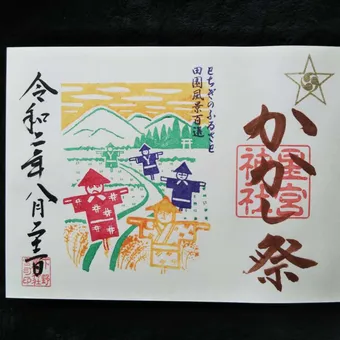 かかし祭
星宮
神社
とちぎのふるさと
田園風景百選
令和二年八月